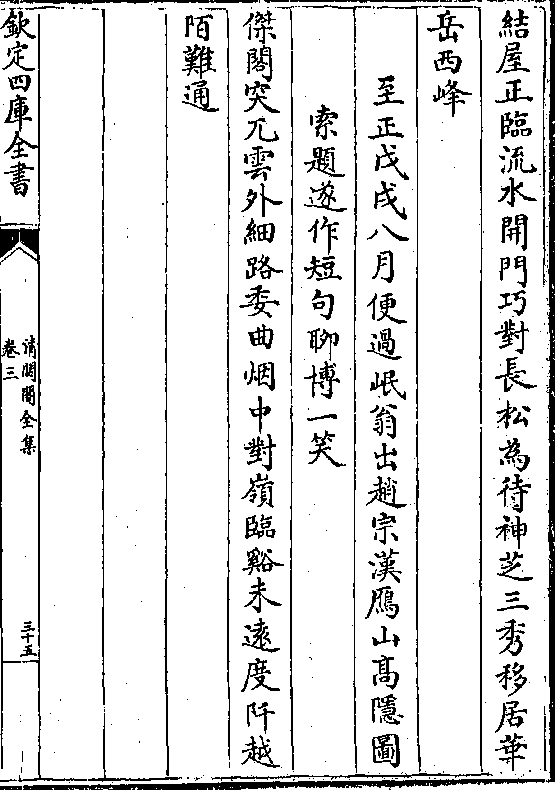 結屋正臨流水開門巧對長松為待神芝三秀移居華
岳西峰
至正戊戌八月便過岷翁出趙宗漢鴈山髙隱圖
索題遂作短句聊博一笑
傑閣突兀雲外細路委曲烟中對嶺臨谿未遠度阡越
陌難通
欽定四庫全書
清閟閣全集
卷三
三十五